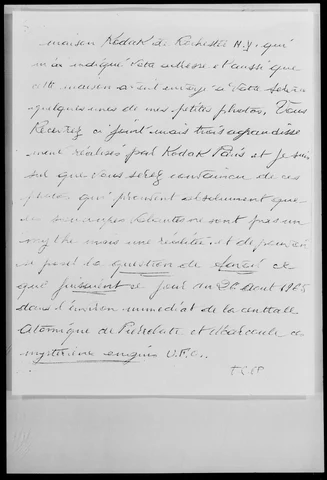 maison Kodak de Rochester N.Y. qui
m'a indiqué votre adresse et aussi que
cette maison avait envoyé à votre
quelques unes de mes petites photos, Vous
Recevrez ci joint mais trois agrandisse
ment réalisés par Kodak Paris et je suis
sur que vous serez convaincu de ces
photos qui prouvent absolument que
les soucoupes volantes ne sont pas un
mythe mais une réalité, et de
se pose la question de Savoir ce
que faisaient ce jour un 26 Aout 1965
dans l'environ immédiat de la centrale
Atomique de Pierrelatte et Marcoule ce
mystérieux engins U.F.O..